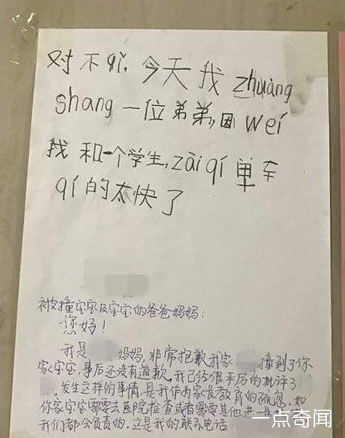 对不qǐ,今天我zhuàng
shang一位弟弟,因wéi
我和一个学生,zài qí单车
qí的太快了
被撞宝宝及宝宝的爸爸妈妈:
您好!
我是 妈妈,非常抱歉我家 撞到了你
家宝宝,事后还没有道歉。我已经很严厉的批评了
发生这样的事情是我作为家长教育的
你家宝宝需要去医院检查或者需要其他
我们都会负责的。这是我的联系电话
一点奇闻